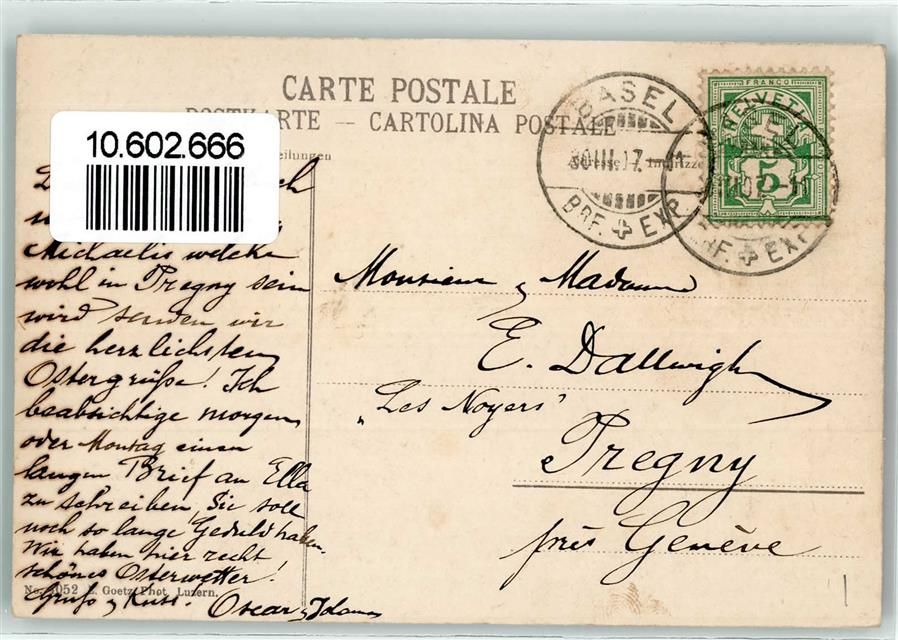 CARTE POSTALE
POSTKARTE — CARTOLINA POSTALE
10.602.666
Adresse Indirizzo
BASEL
30 III. 17. 11
BRF. + EXP.
FRANCO
HELVETIA
5
BRF. + EXP.
Michaelis welche
wohl in Pregny sein
wird senden wir
die herzlichsten
Ostergrüße! Ich
beabsichtige morgen
oder Montag einen
langen Brief an Ella
zu schreiben, Sie soll
noch so lange Geduld haben.
Wir haben hier recht
schönes Osterwetter!
Gruß & Kuss. Oscar &
Monsieur & Madame
E. Dallwigk
„Les Noyers"
Pregny
près Genève
E. Goetz Phot. Luzern.